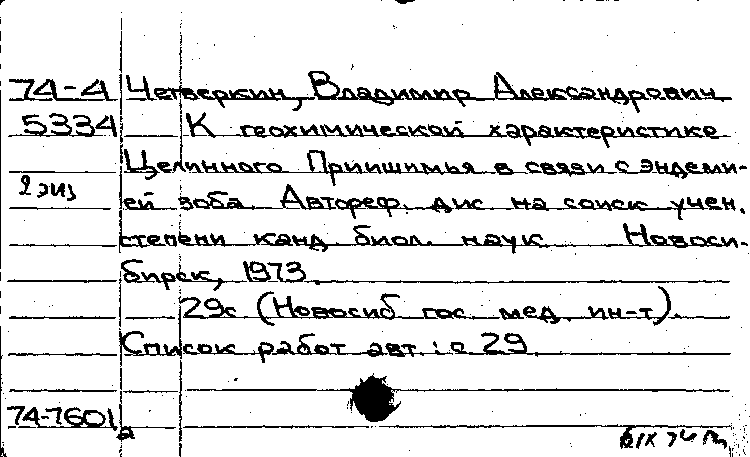 74-4 Четверкин, Владимир Александрович
5334 К геохимической характеристике
Целинного Приишимья в связи с эндеми-
2 экз ей зоба. Автореф. дис на соиск учен.
степени канд биол. наук Новоси-
бирск, 1973.
29с (Новосиб гос. мед. ин-т).
Список работ авт.: с 29.
74-7601а